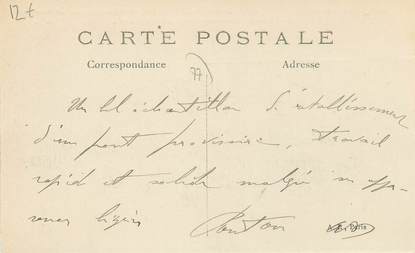 12t
CARTE POSTALE
Correspondance
77
Adresse
Un bel échantillon d'établissement
d'un pont provisoire, travail
rapide et solide malgré son appa-
rence légère
Paris